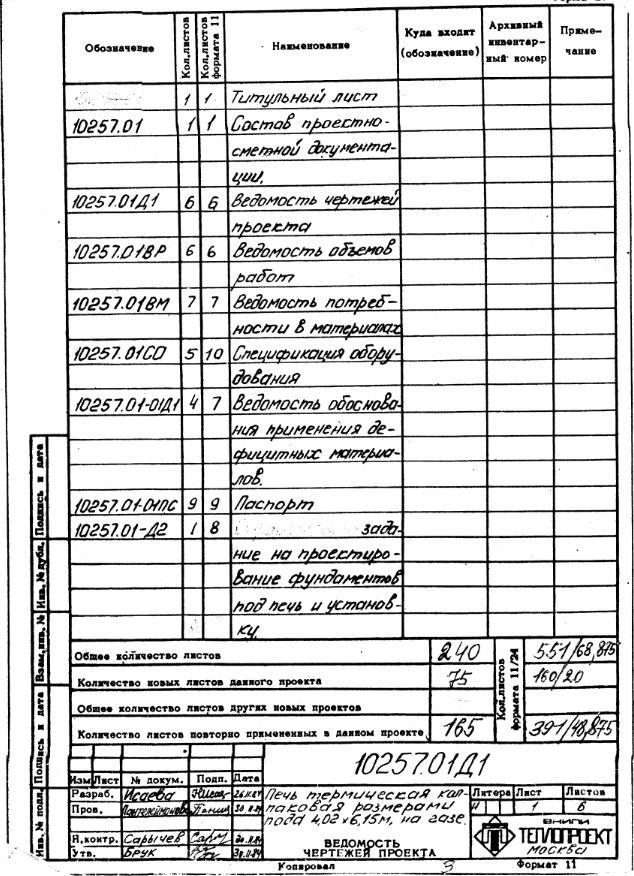 Обозначение Кол.листов Кол.листов формата 11 Наименование Куда входит (обозначение) Архивный инвентарный номер Приме-чание
1 1 Титульный лист
10257.01 1 1 Состав проектно-
сметной документа-
ции.
10257.01Д1 6 6 Ведомость чертежей
проекта
10257.01ВР 6 6 Ведомость объемов
работ
10257.01ВМ 7 7 Ведомость потреб-
ности в материалах
10257.01СО 5 10 Спецификация обору-
дования
10257.01-01Д1 4 7 Ведомость обоснова-
ния применения де-
фицитных материа-
лов.
10257.01-01ПС 9 9 Паспорт
10257.01-Д2 1 8 зада-
ние на проектиро-
вание фундаментов
под печь и установ-
ку
Общее количество листов 240 Кол.листов формата 11/24 551/68,875
Количество новых листов данного проекта 75 160/20
Общее количество листов других новых проектов
Количество листов повторно примененных в данном проекте 165 391/48,875
10257.01Д1
Изм Лист № докум. Подп. Дата
Разраб. Исаева 26.11.84
Пров. Пантелеймонова 30.11.84
Н.контр. Сарычев 30.11.84
Утв. Брук 30.11.84
Печь термическая кол-
паковая размерами
пода 4,02х6,15м, на газе.
ВЕДОМОСТЬ
ЧЕРТЕЖЕЙ ПРОЕКТА
Литера Лист Листов
И 1 6
ВНИПИ
ТЕПЛОПРОЕКТ
Москва
Копировал Формат 11
Инв. № подл. Подпись и дата Взам. инв. № Инв. № дубл. Подпись и дата